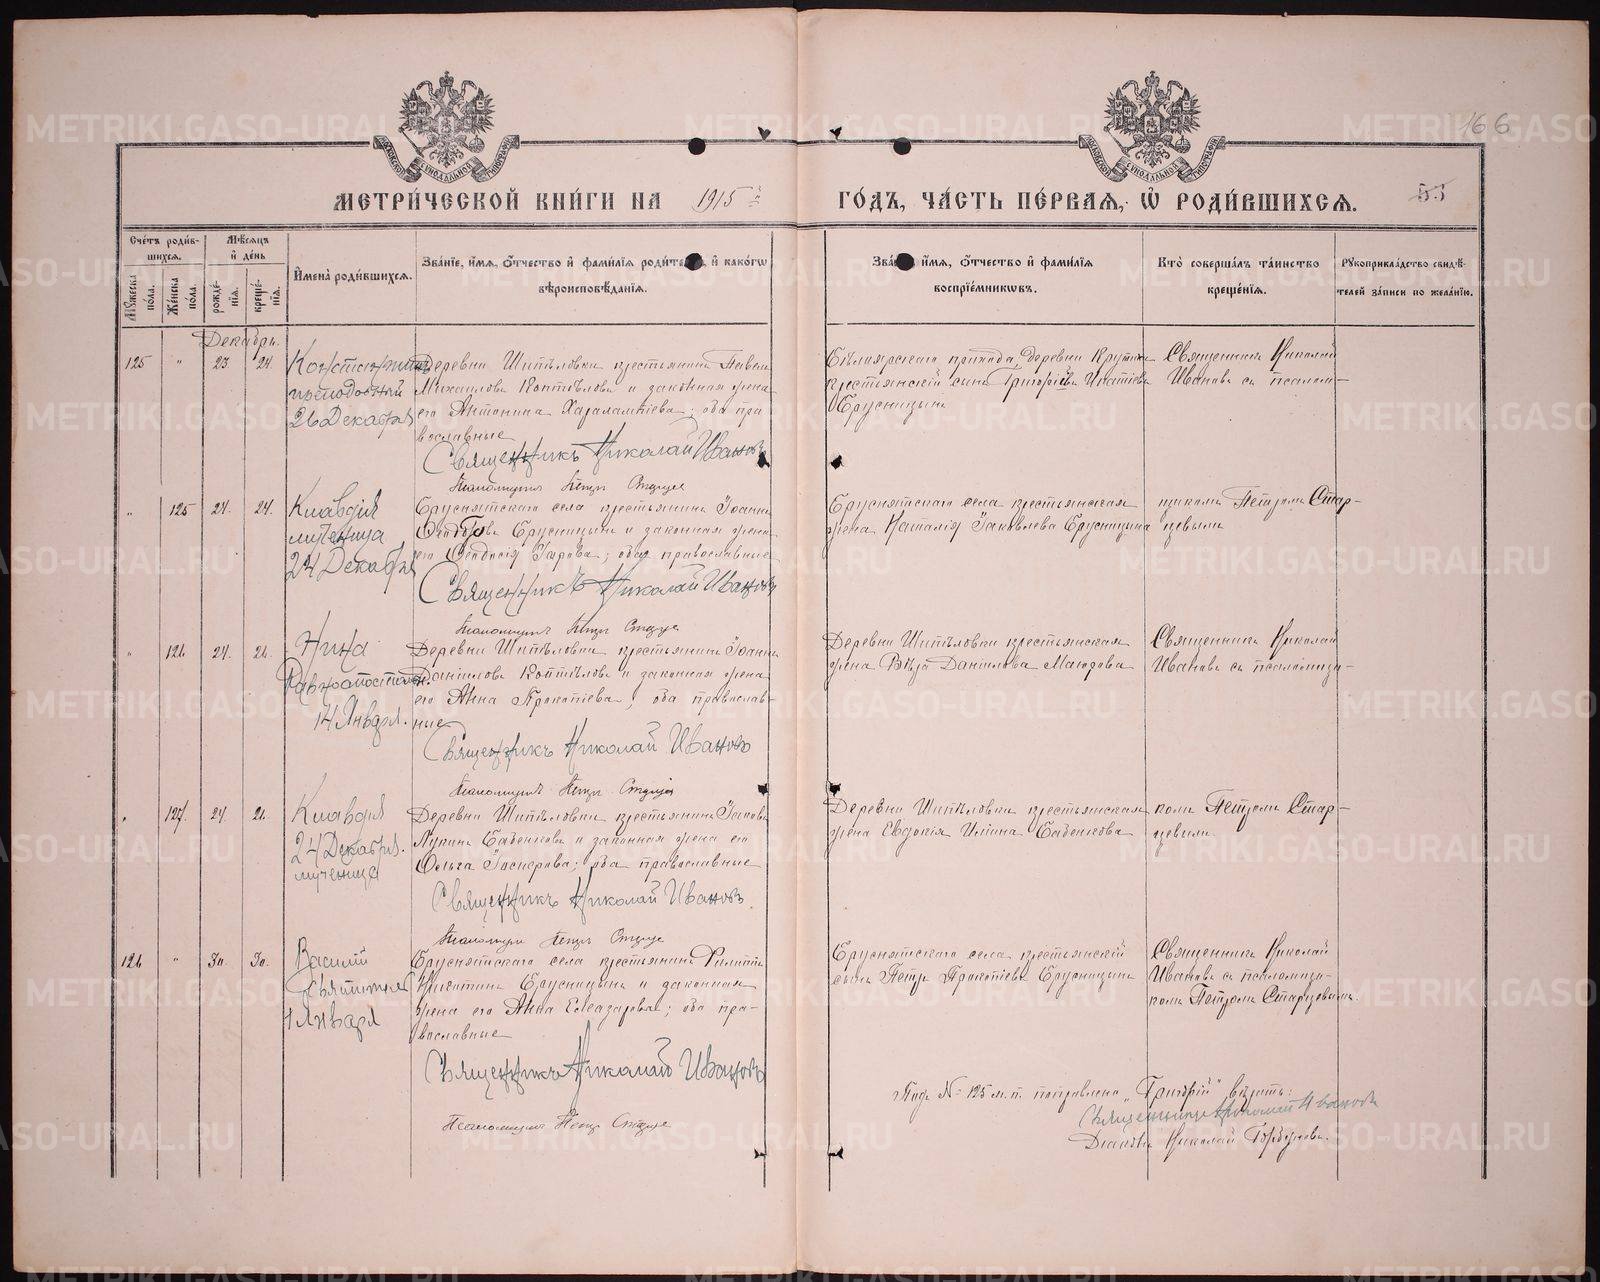 166
МЕТРИ́ЧЕСКОЙ КНИ́ГИ НА 1915й ГО́ДЪ, ЧА́СТЬ ПЕ́РВАЯ, Ѡ҆ РОДИ́ВШИХСЯ.
53
Сче́тъ роди́в-
шихся.
Мꙋ́жеска пола.
Же́нска пола.
Мѣ́сяцъ
и҆ де́нь
рожде́-
нїя.
креще́-
нїя.
И҆мена̀ роди́вшихся.
Зва́нїе, и҆́мя, ѻ҆́тчество и҆ фами́лїя роди́телей, и҆ како́гѡ
вѣроисповѣ́данїя.
Зва́нїе, и҆́мя, ѻ҆́тчество и҆ фами́лїя
воспрїе́мникѡвъ.
Кто̀ соверша́лъ та́инство
креще́нїя.
Рꙋкоприкла́дство свидѣ́-
телей за́писи по жела́нїю.
Декабрь.
125 " 23. 24.
Константинъ
преподобный
26 Декабря
Деревни Шипѣловки крестьянинъ Павелъ
Михаиловъ Коптѣловъ и законная жена
его Антонина Харалампіева; оба пра
вославные
Священникъ Николай Ивановъ
Псаломщикъ Петръ Старцевъ
прихода, деревни
крестьянскій сынъ Григорій Игнатіевъ
Брусницынъ
Священникъ Николай
Ивановъ съ псалом-
" 125 24. 24.
Клавдія
мученица
24 Декабря
Бруснятскаго села крестьянинъ Іоаннъ
Брусницынъ и законная жена
его Ѳеодосія; оба православные
Священникъ Николай Ивановъ
Псаломщикъ Петръ Старцевъ
Бруснятскаго села крестьянская
жена Наталія Іаковлева Брусницына
щикомъ Петромъ Стар-
цевымъ
" 126 24. 26.
Нина
Равноапостольн.
14 Января.
Деревни Шипѣловки крестьянинъ Іоаннъ
Даніиловъ Коптѣловъ и законная жена
его Анна Прокопіева, оба православ-
ные
Священникъ Николай Ивановъ
Псаломщикъ Петръ Старцевъ
Деревни Шипѣловки крестьянская
жена Вѣра Даніилова
Священникъ Николай
Ивановъ съ псаломщи-
" 127. 24. 26.
Клавдія
24 Декабря.
мученица
Деревни Шипѣловки крестьянинъ Іаковъ
Бабенковъ и законная жена его
Ольга; оба православные
Священникъ Николай Ивановъ
Псаломщикъ Петръ Старцевъ
Деревни Шипѣловки крестьянская
жена Евдокія Иліина Бабенкова
комъ Петромъ Стар-
цевымъ
126 " 30. 30.
Василій
Святитель
1 Января
Бруснятскаго села крестьянинъ Филиппъ
Никитинъ Брусницынъ и законная
жена его Анна Елеазарова; оба пра-
вославные
Священникъ Николай Ивановъ
Псаломщикъ Петръ Старцевъ
Бруснятскаго села, крестьянскій
сынъ Петръ Прокопіевъ Брусницынъ
Священникъ Николай
Ивановъ съ псаломщи-
комъ Петромъ Старцевымъ.
Подъ № 125 м.п. поправлено „Григорій" вѣрить:
Священникъ Николай Ивановъ
Діаконъ Николай Горбуновъ.
METRIKI.GASO-URAL.RU